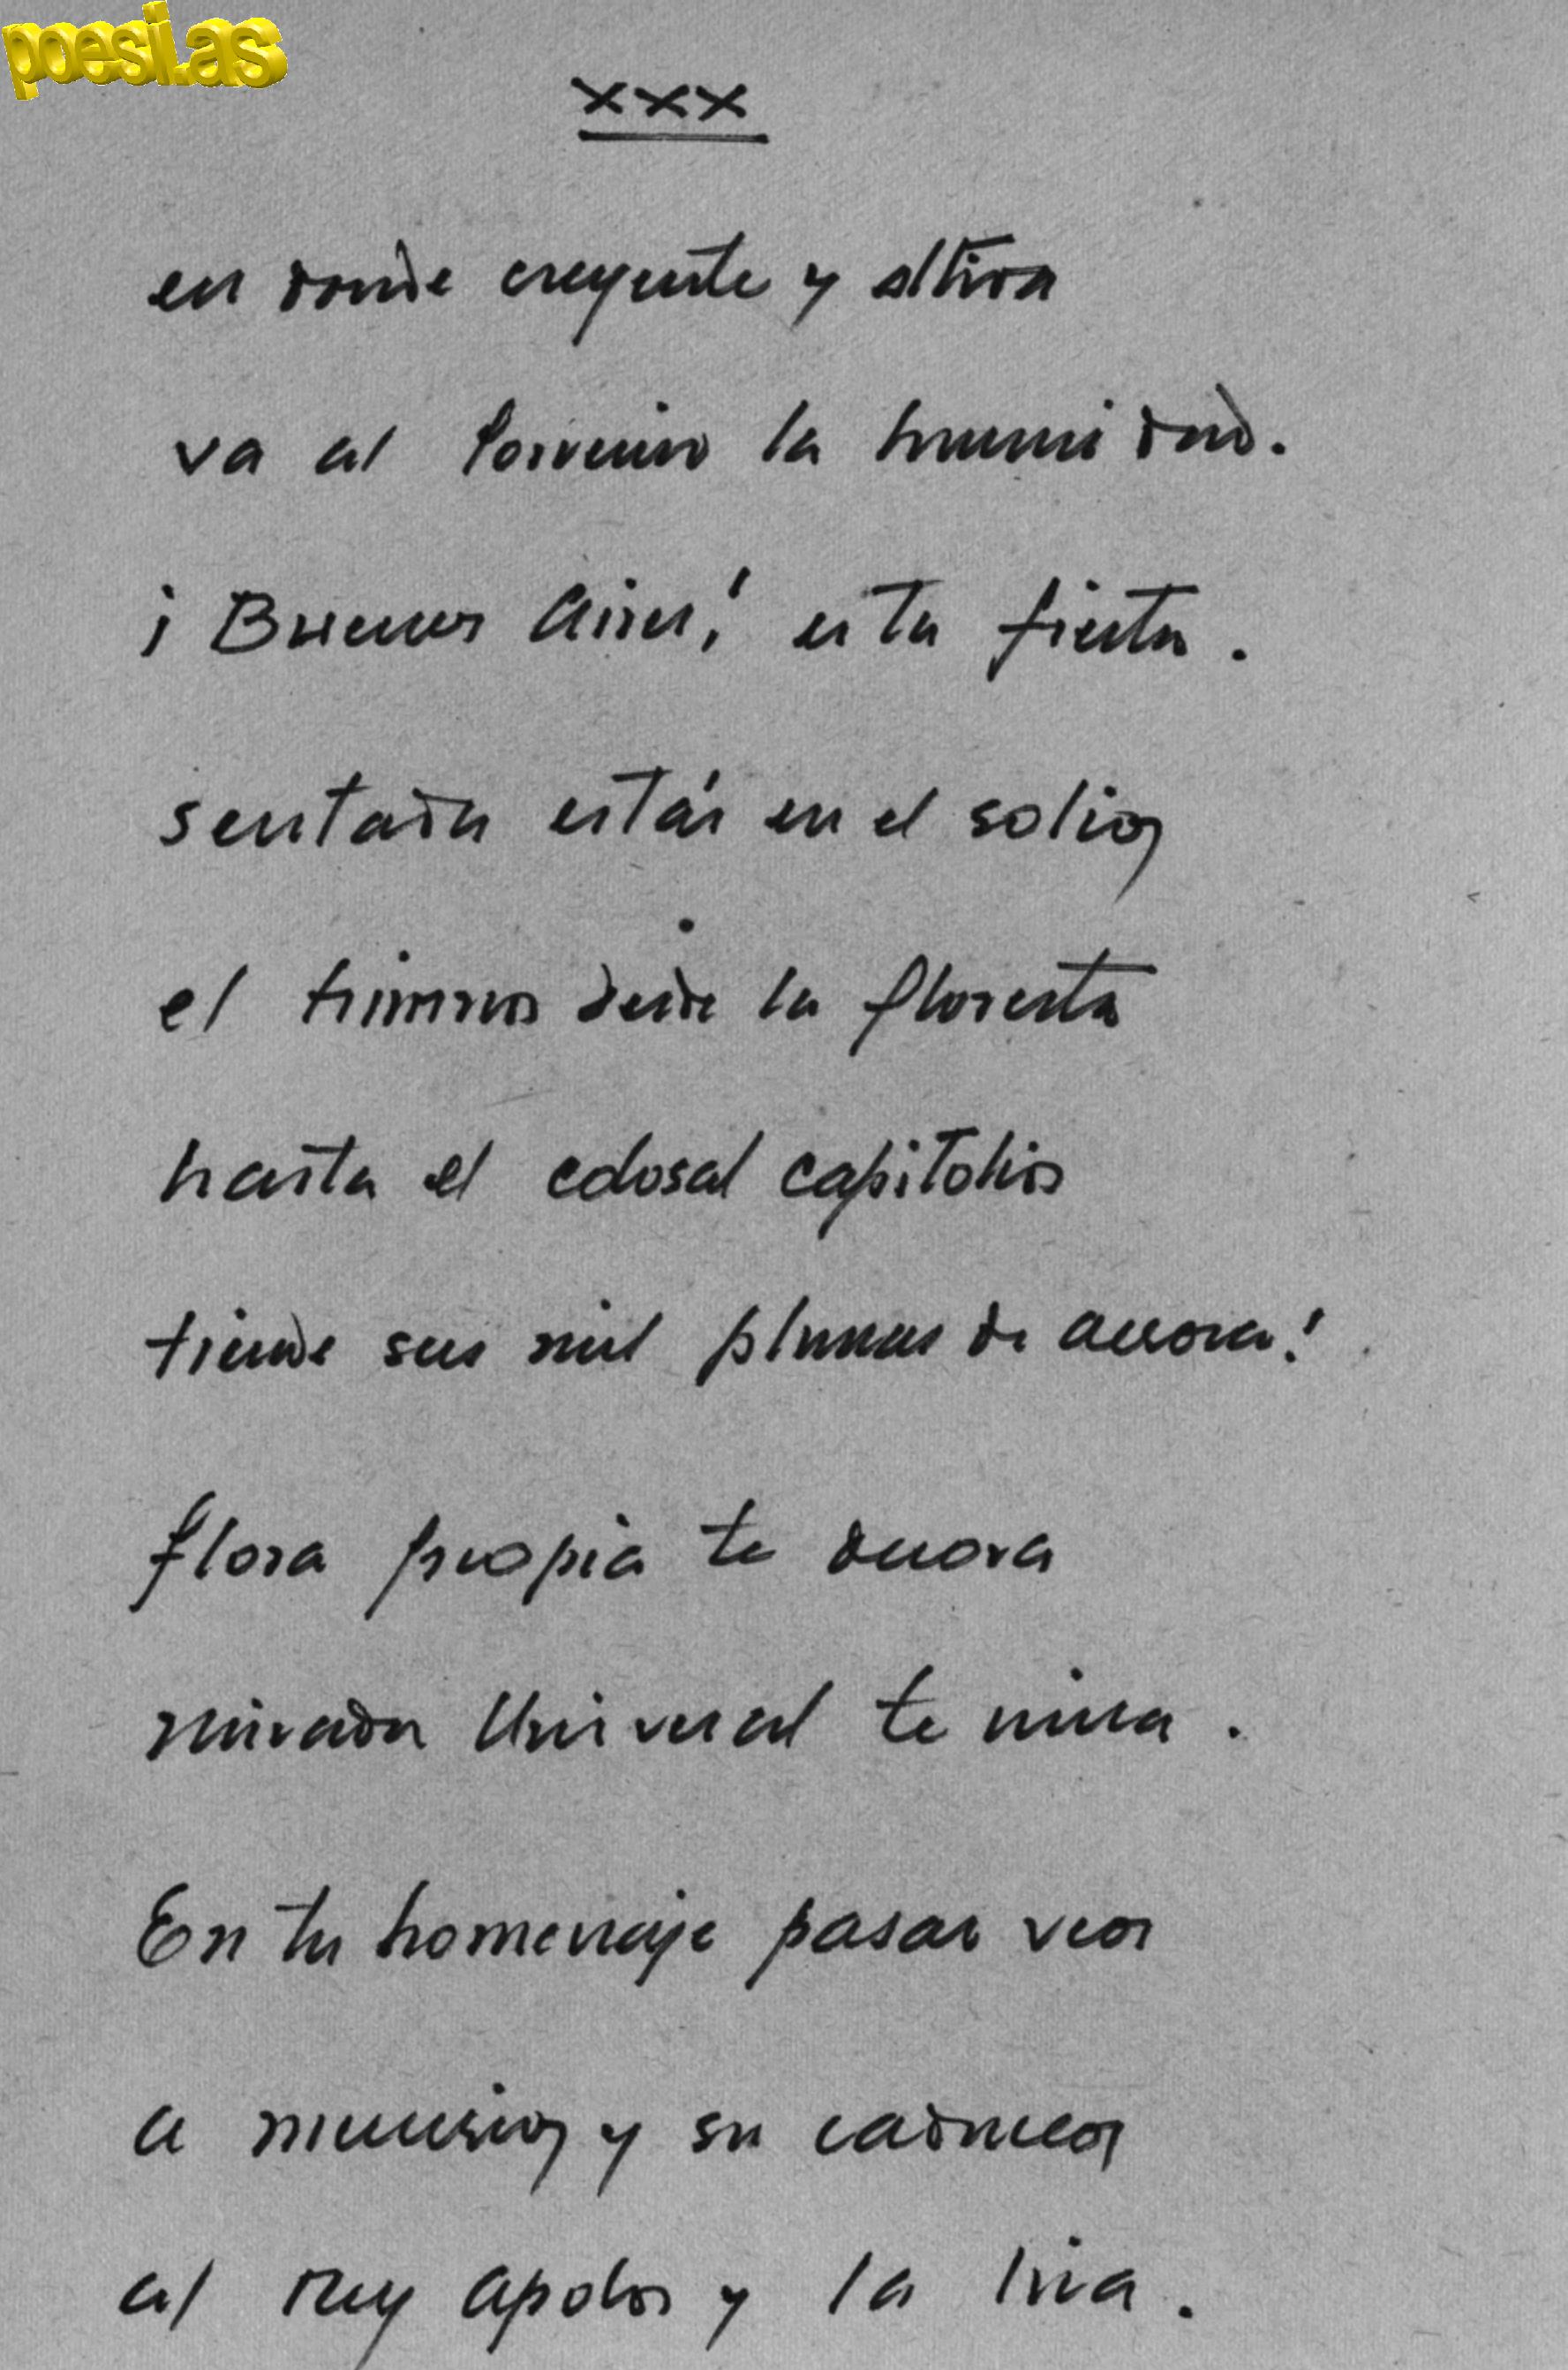 poesi.as
XXX
en donde creyente y altiva
va al Porvenir la humanidad.
¡Buenos Aires! es tu fiesta.
sentada estás en el solio,
el himno desde la floresta
hasta el colosal capitolio
tiende sus mil plumas de aurora!
flora propia te decora
mirada Universal te mira.
En tu homenaje pasar veo
a mercurio y su caduceo
al rey apolo y la lira.